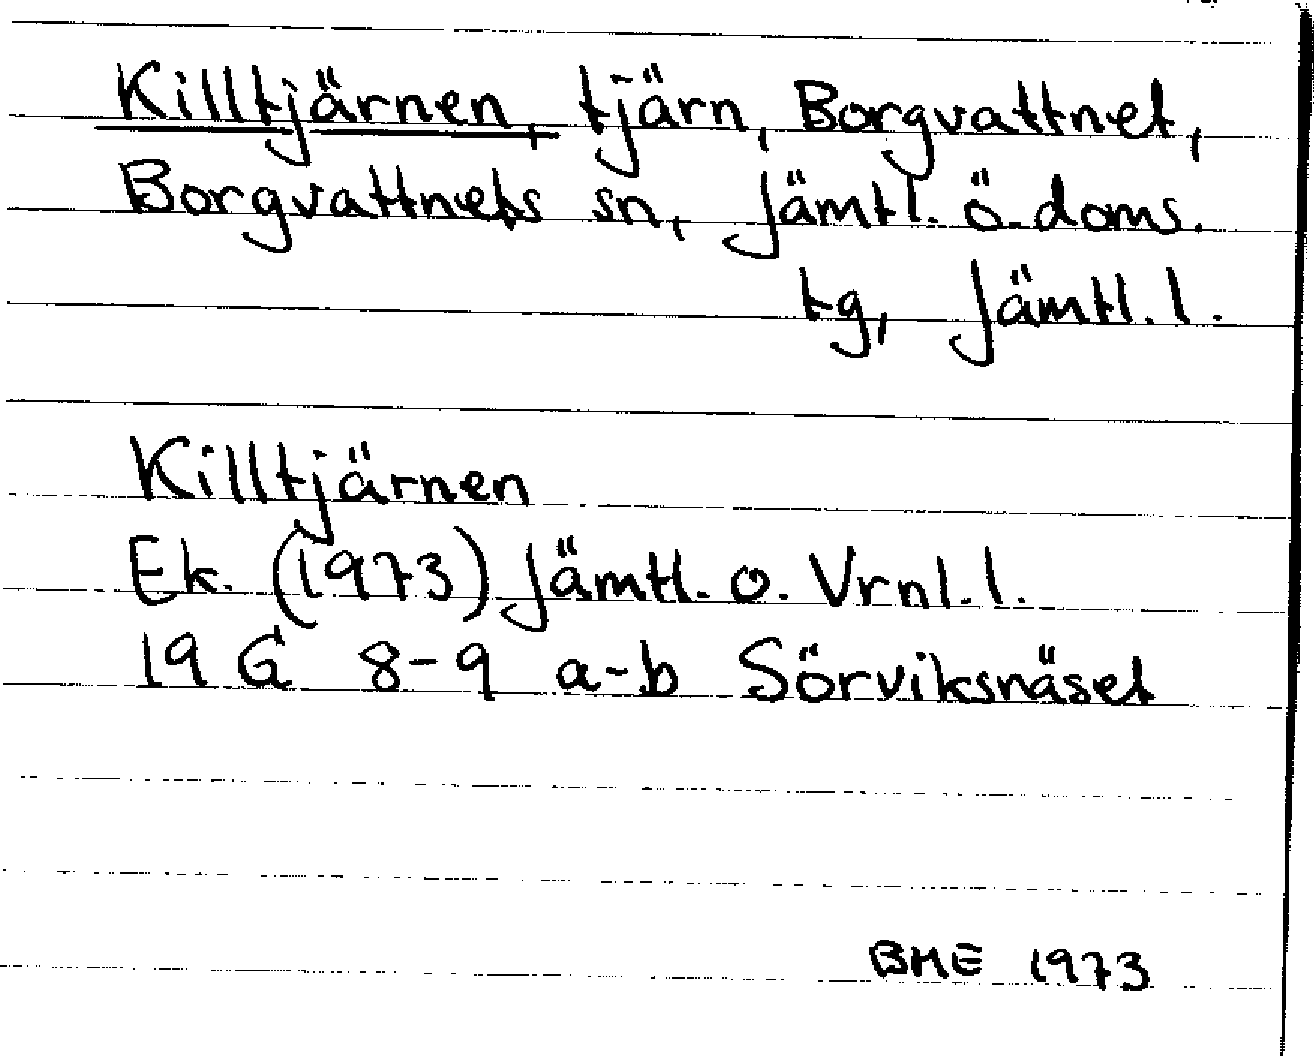 Killtjärnen, tjärn, Borgvattnet,
Borgvattnets sn, Jämtl. ö. doms.
tg, Jämtl. l.
Killtjärnen
Ek. (1973) Jämtl. o. Vrnl. l.
19 G 8-9 a-b Sörviksnäset
BME 1973